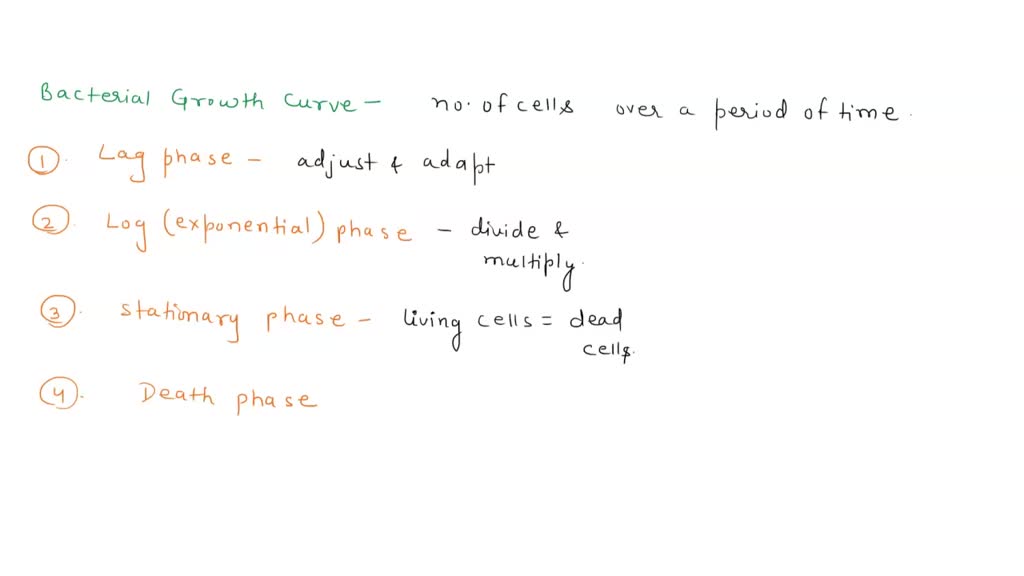 Bacterial Growth Curve - no. of cells over a period of time.
①. Lag phase - adjust & adapt
②. Log (exponential) phase - divide &
multiply.
③. Stationary phase - living cells = dead
cells.
④. Death phase